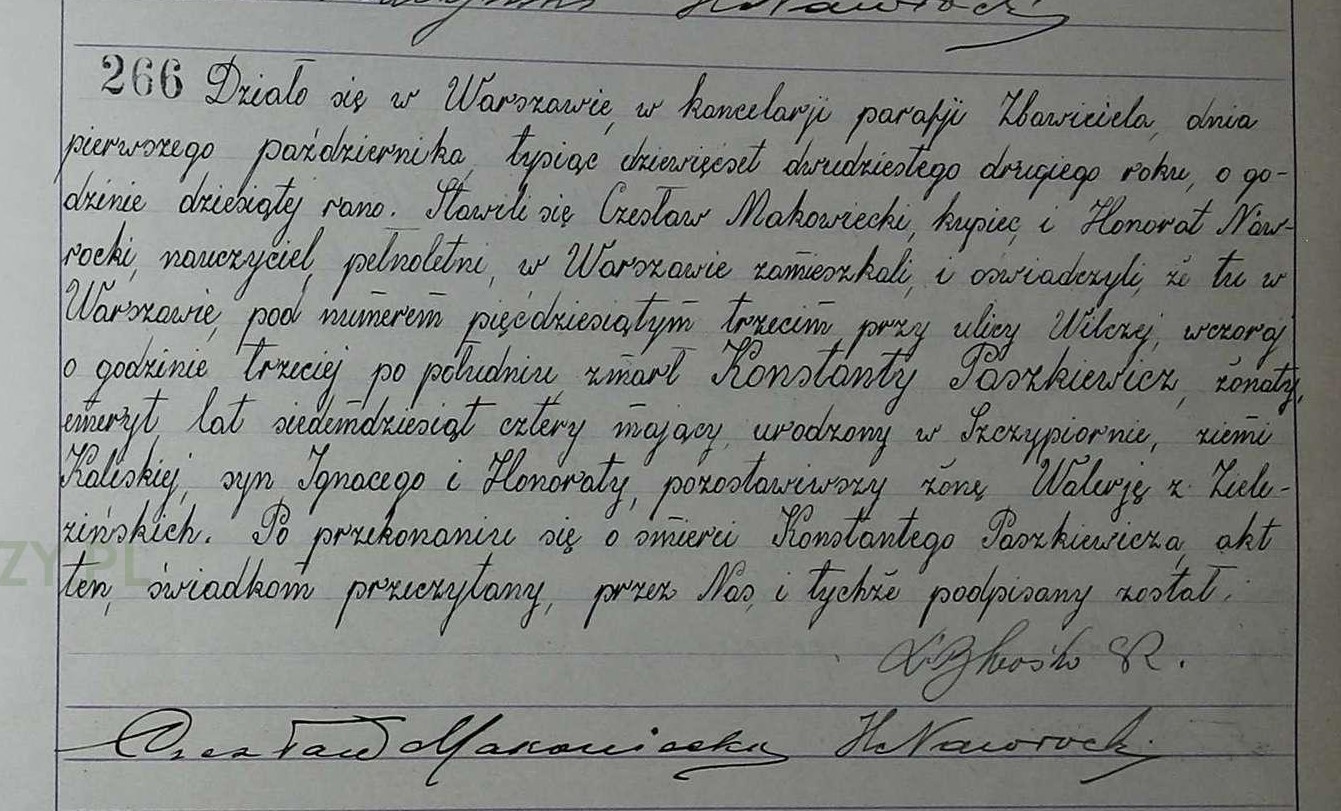 H Nawrocki
266 Działo się w Warszawie, w kancelarji parafji Zbawiciela, dnia
pierwszego października, tysiąc dziewięćset dwudziestego drugiego roku, o go-
dzinie dziesiątej rano. Stawili się Czesław Makowiecki, kupiec, i Honorat Naw-
rocki, nauczyciel, pełnoletni, w Warszawie zamieszkali, i oświadczyli, że tu w
Warszawie, pod numerem pięćdziesiątym trzecim przy ulicy Wilczej, wczoraj
o godzinie trzeciej po południu, zmarł Konstanty Paszkiewicz, żonaty,
emeryt, lat siedemdziesiąt cztery mający, urodzony w Szczypiornie, ziemi
Kaliskiej, syn Ignacego i Honoraty, pozostawiwszy żonę Walerję z Ziele-
zińskich. Po przekonaniu się o śmierci Konstantego Paszkiewicza, akt
ZY.PL
ten, świadkom przeczytany, przez Nas, i tychże podpisany został.
Czesław Makowiecki H Nawrocki